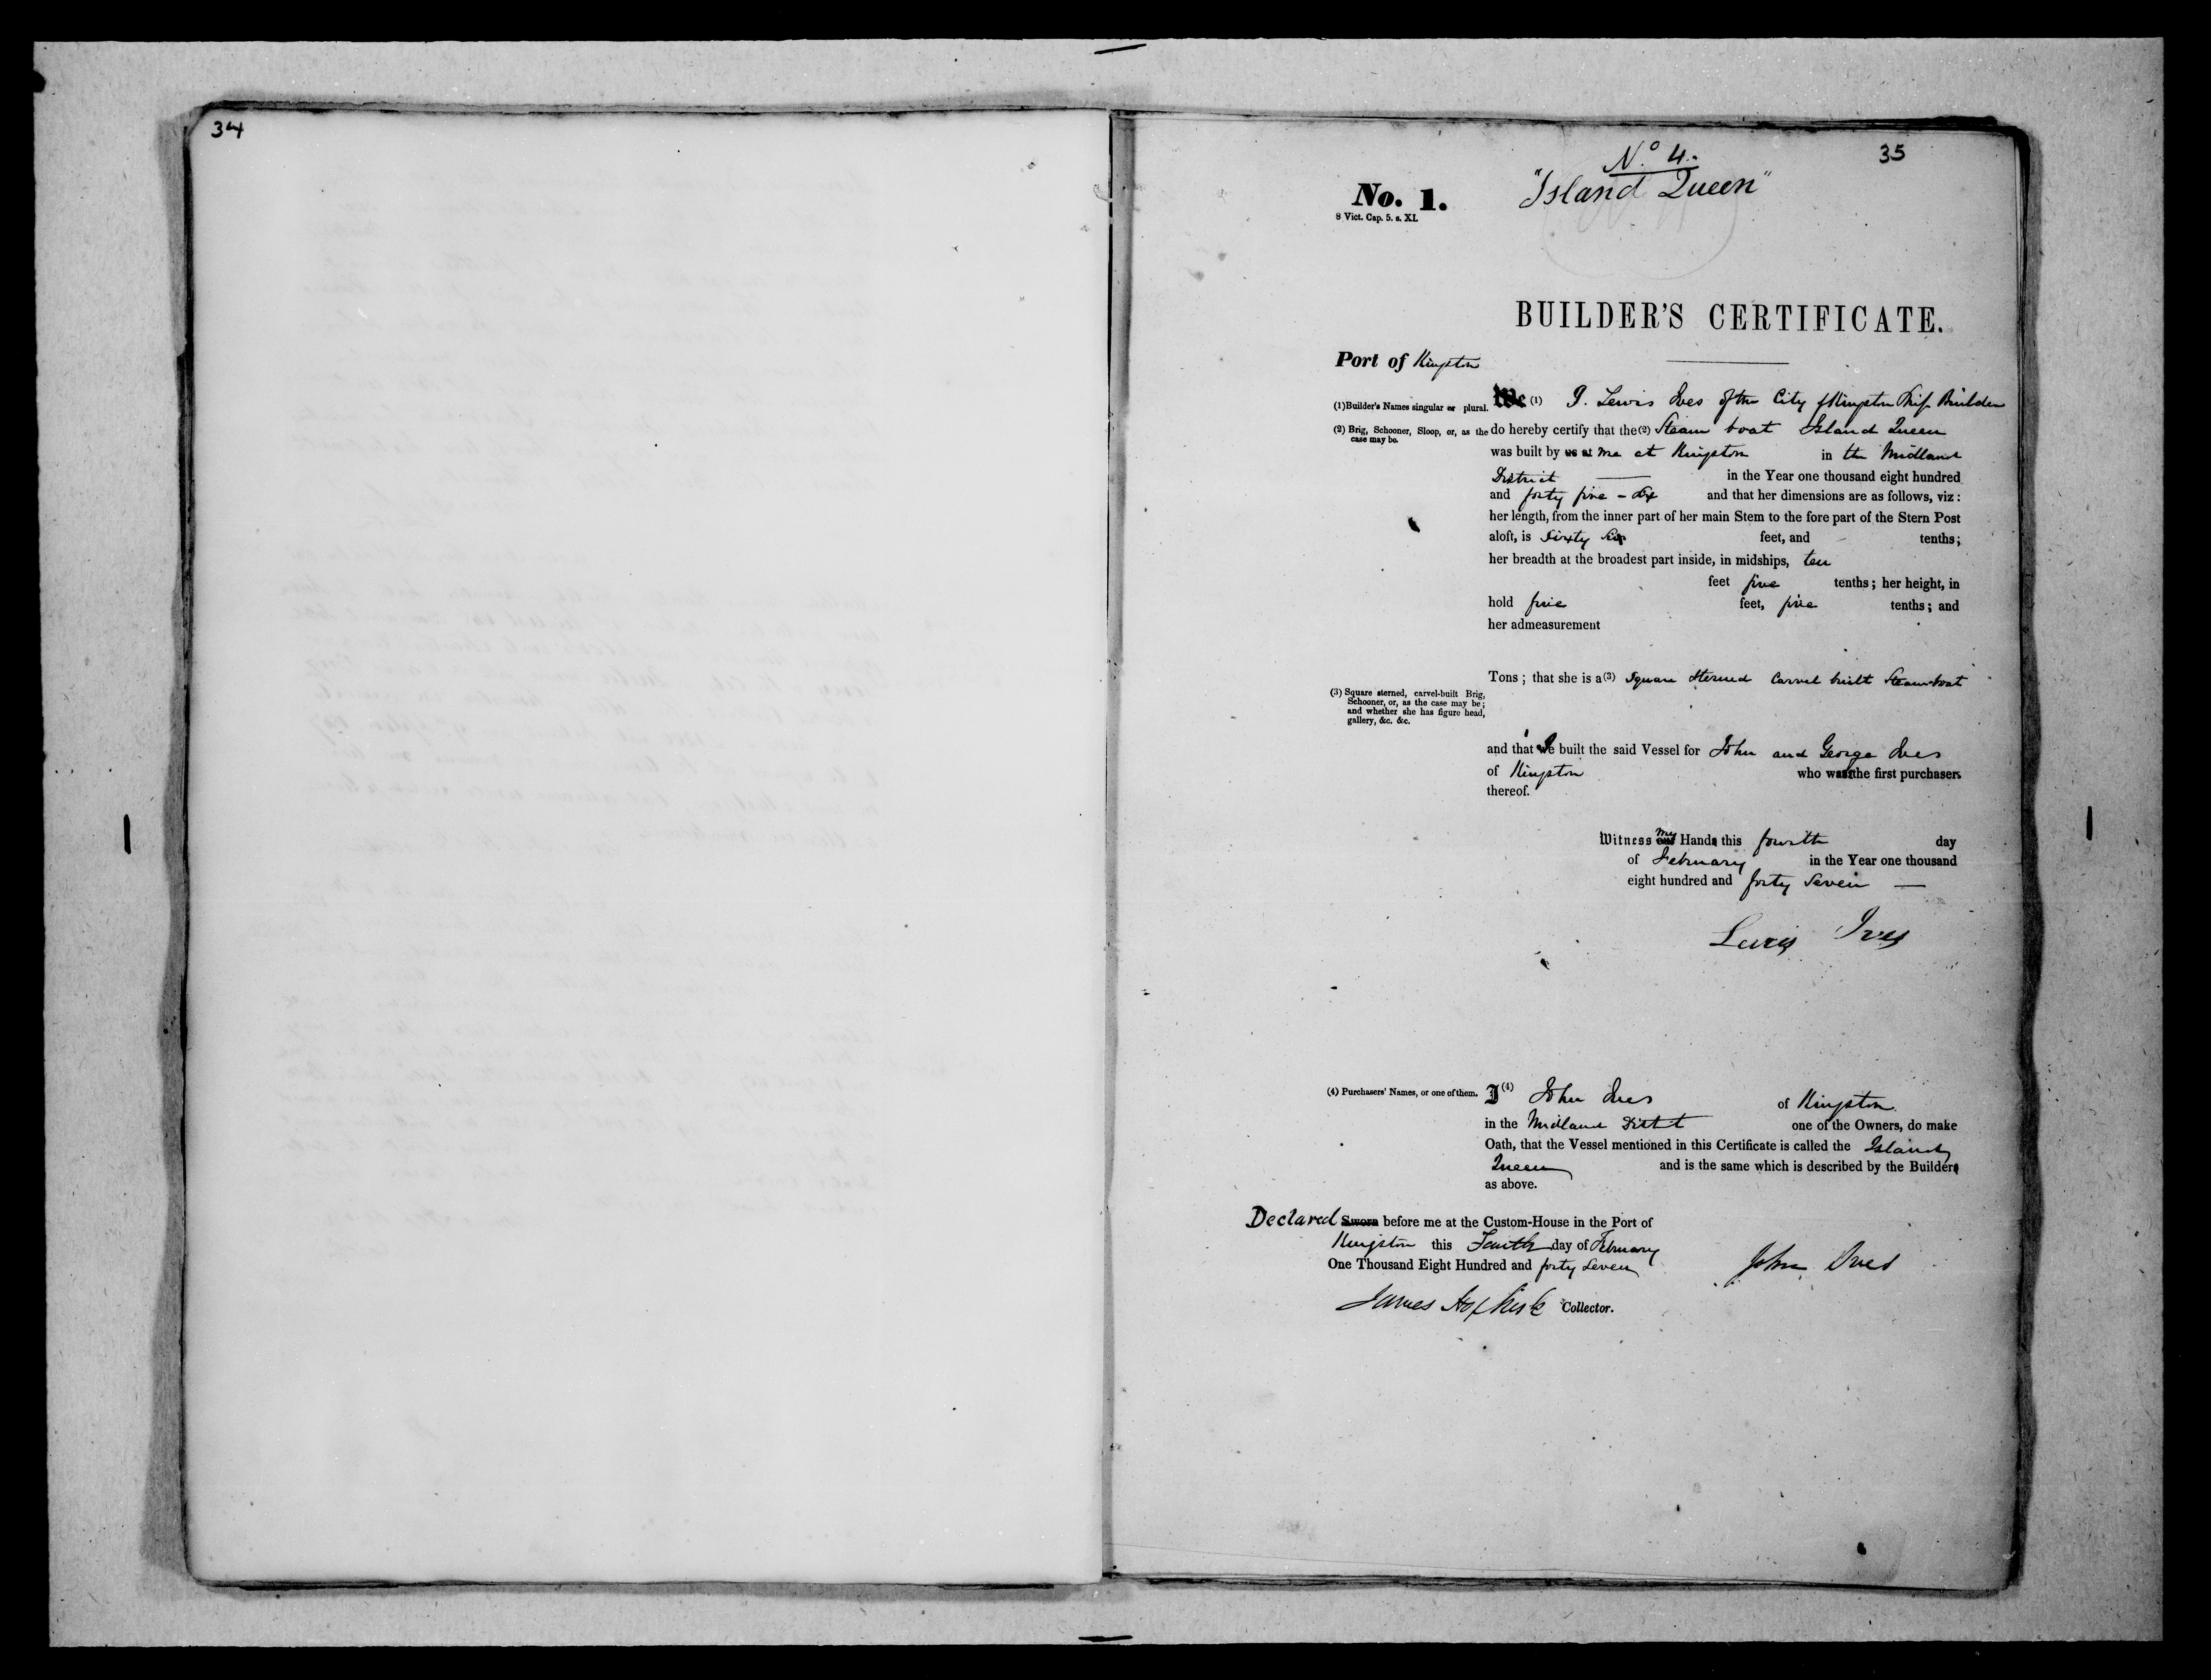 34
35
No. 4.
"Island Queen"
No. 1.
8 Vict. Cap. 5. s. XI.
BUILDER'S CERTIFICATE.
Port of Kingston
(1)Builder's Names singular or plural.
We (1) I. Lewis Ives of the City of Kingston Ship Builder
(2) Brig, Schooner, Sloop, or, as the case may be.
do hereby certify that the (2) Steam boat Island Queen
was built by us at me at Kingston in the Midland
District — in the Year one thousand eight hundred
and forty five - six and that her dimensions are as follows, viz:
her length, from the inner part of her main Stem to the fore part of the Stern Post
aloft, is Sixty Six feet, and - tenths;
her breadth at the broadest part inside, in midships, ten
feet five tenths; her height, in
hold five feet, five tenths; and
her admeasurement
Tons; that she is a (3) Square Sterned Carvel built Steamboat
(3) Square sterned, carvel-built Brig,
Schooner, or, as the case may be;
and whether she has figure head,
gallery, &c. &c.
and that I built the said Vessel for John and George Ives
of Kingston who was the first purchasers
thereof.
Witness my Hand this fourth day
of February in the Year one thousand
eight hundred and forty Seven —
Lewis Ives
(4) Purchasers' Names, or one of them.
I (4) John Ives of Kingston
in the Midland District one of the Owners, do make
Oath, that the Vessel mentioned in this Certificate is called the Island
Queen and is the same which is described by the Builder
as above.
Declared Sworn before me at the Custom-House in the Port of
Kingston this Fourth day of February
One Thousand Eight Hundred and forty Seven
John Ives
James Hopkirk Collector.